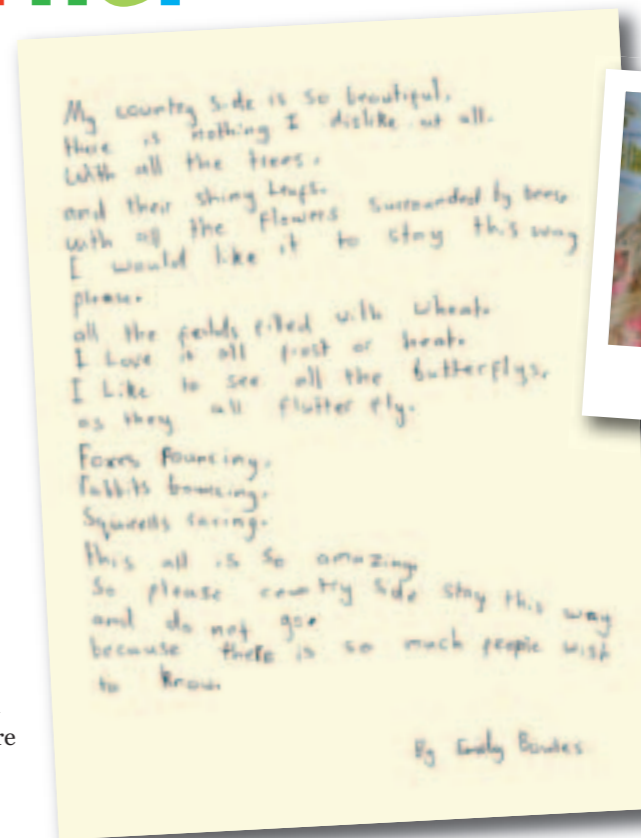 My country side is so beautiful.
there is nothing I dislike at all.
With all the trees.
and their shiny leafs.
with all the flowers surrounded by bees
I would like it to stay this way
please.
all the feilds filed with wheat.
I Love it all frost or heat.
I Like to see all the butterflys.
as they all flutter fly.
Foxes Pouncing.
rabbits bouncing.
Squirells
this all is so amazing
So please country side stay this way
and do not go.
because there is so much people wish
to know.
By Emily
re